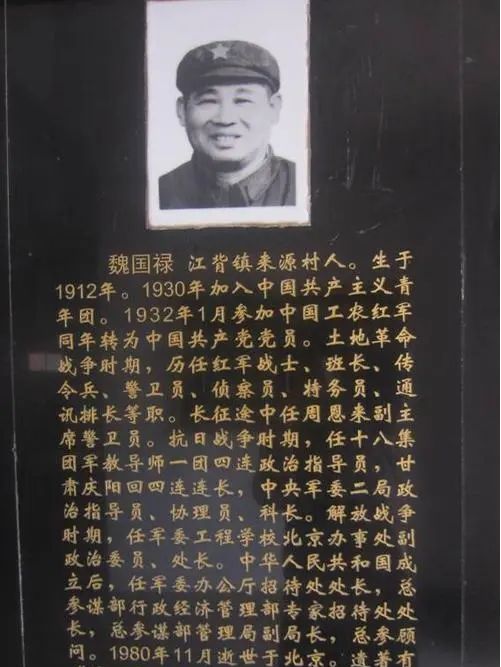 魏国禄 江背镇来源村人。生于
1912年。1930年加入中国共产主义青
年团。1932年1月参加中国工农红军
同年转为中国共产党党员。土地革命
战争时期，历任红军战士、班长、传
令兵、警卫员、侦察员、特务员、通
讯排长等职。长征途中任周恩来副主
席警卫员。抗日战争时期，任十八集
团军教导师一团四连政治指导员，甘
肃庆阳回四连连长，中央军委二局政
治指导员、协理员、科长。解放战争
时期，任军委工程学校北京办事处副
政治委员、处长。中华人民共和国成
立后，任军委办公厅招待处处长，总
参谋部行政经济管理部专家招待处处
长，总参谋部管理局副局长，总参顾
问。1980年11月逝世于北京。遗著有